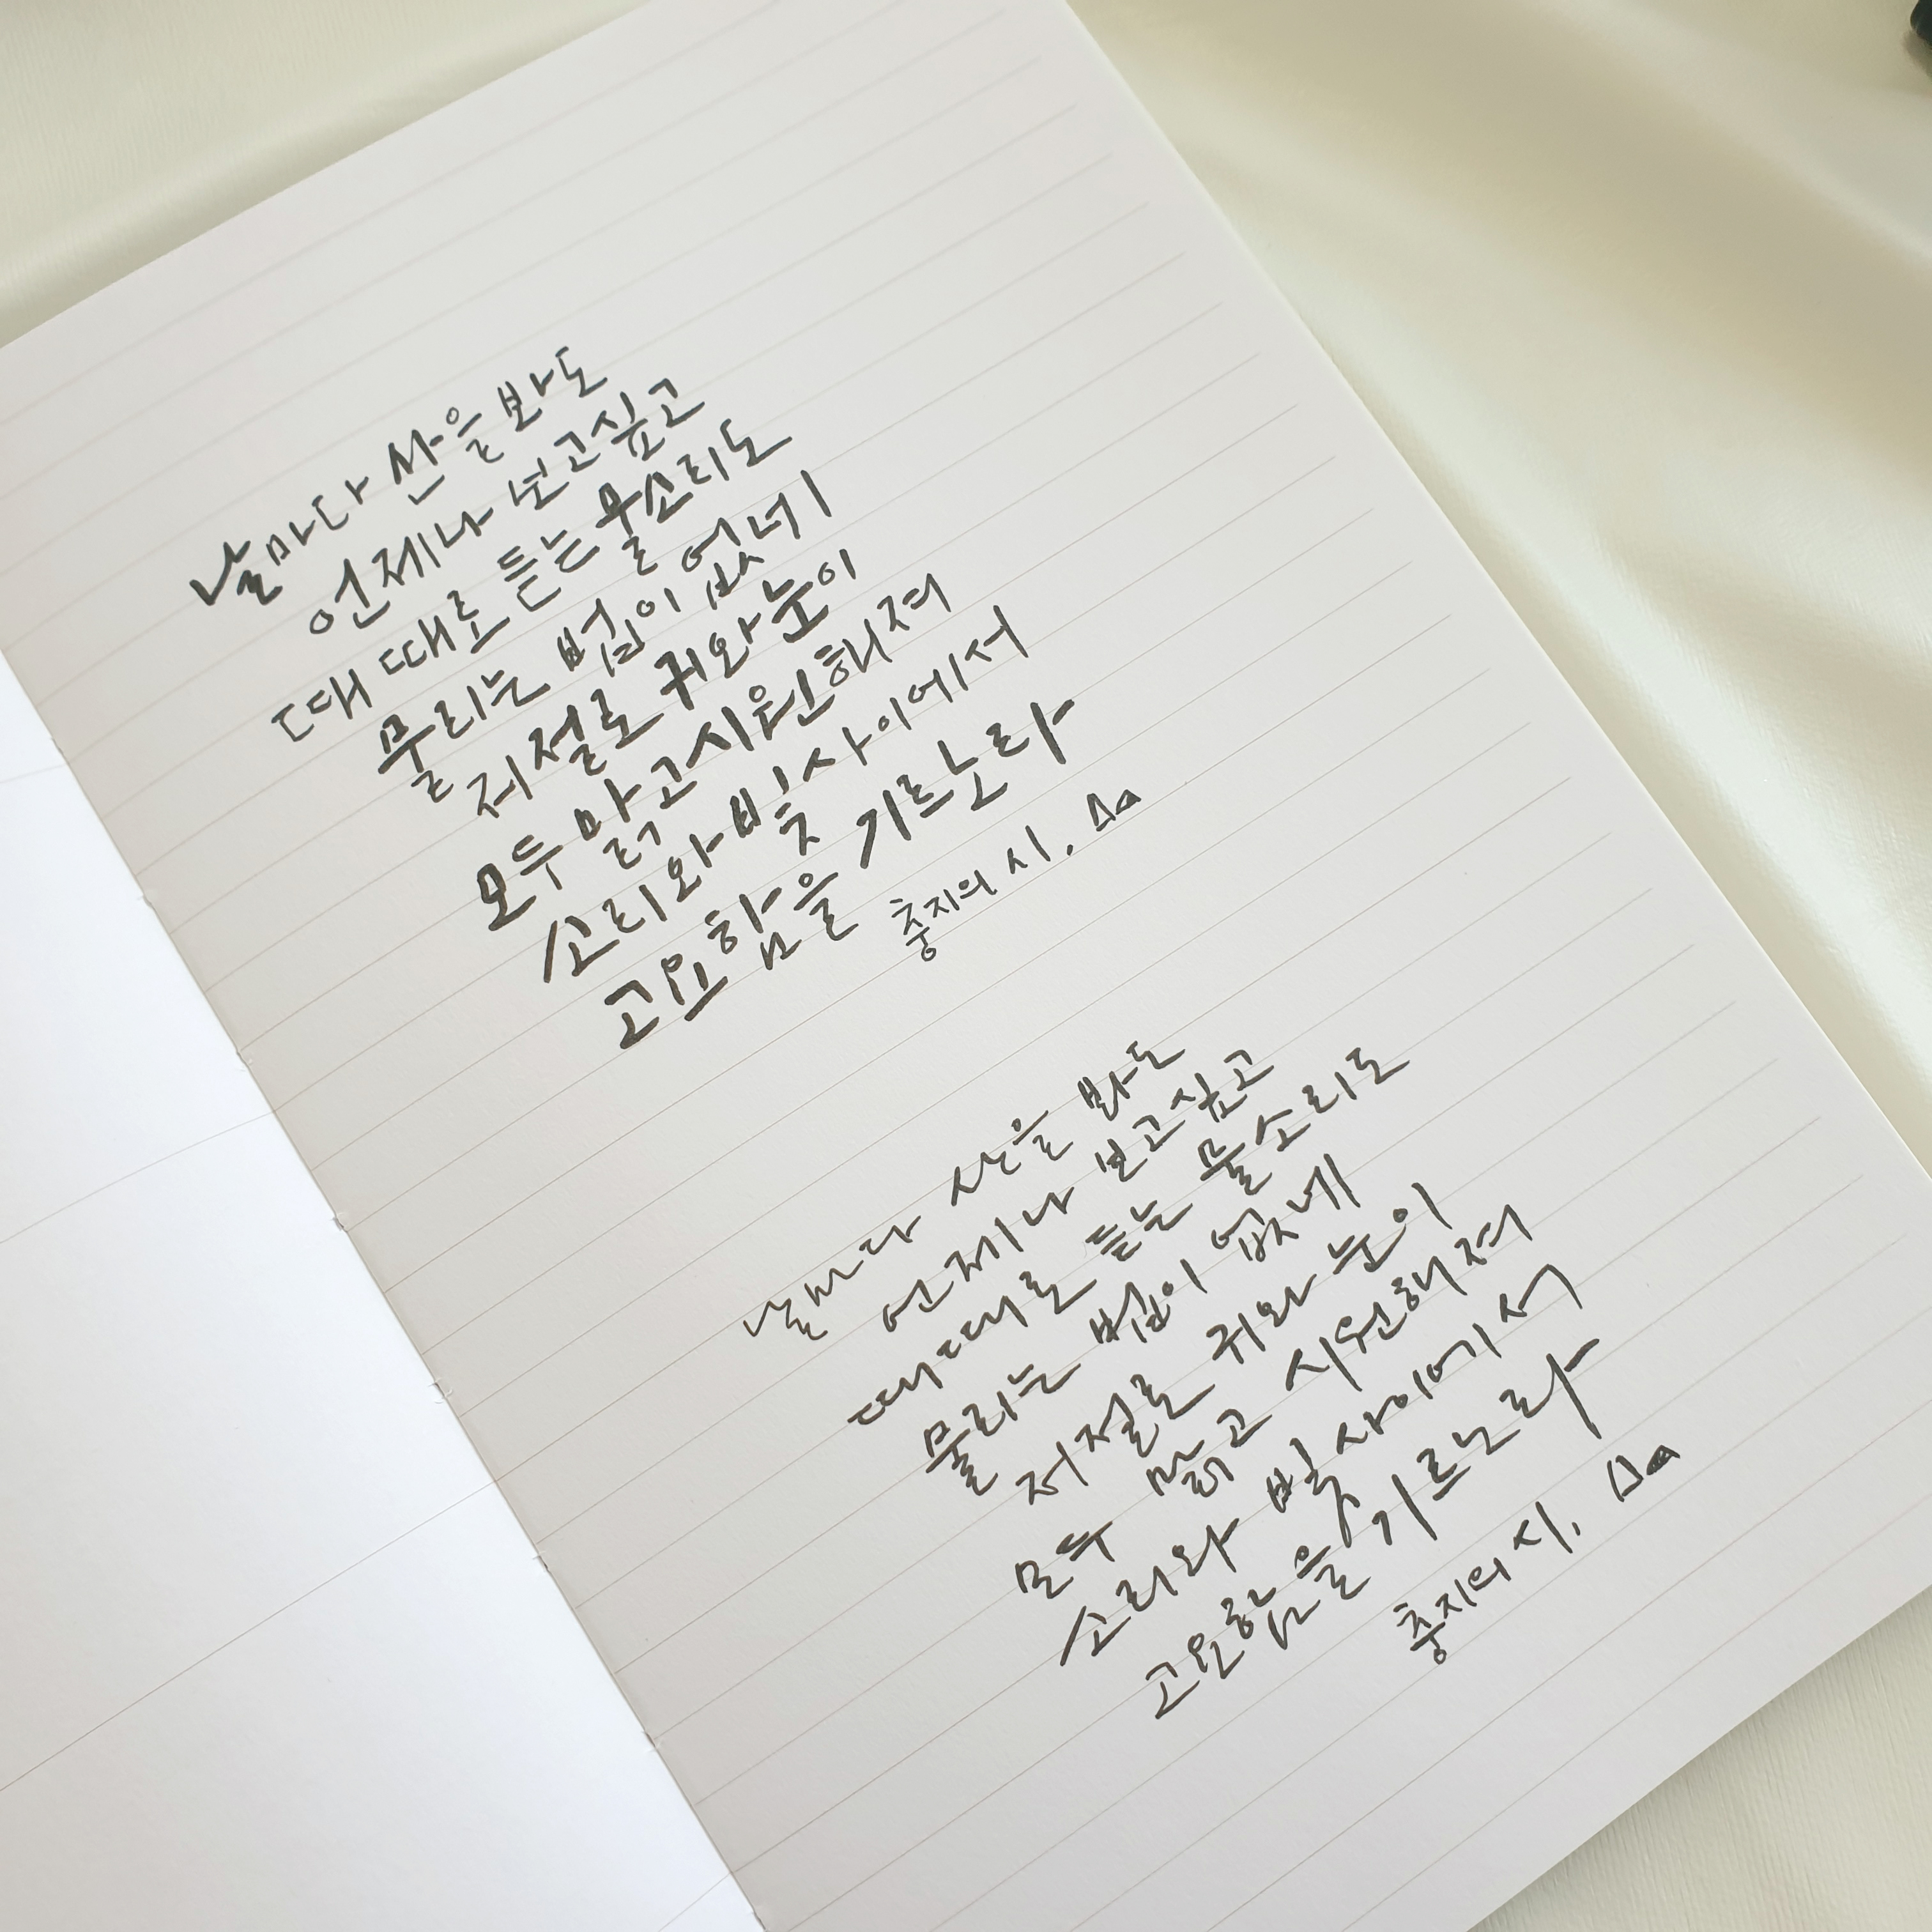 날마다 산을 봐도
언제나 보고싶고
때때로 듣는 물소리도
물리는 법이 없네
저절로 귀와 눈이
모두 맑고 시원해져
소리와 빛 사이에서
고요함을 기르노라
충지의 시.
날마다 산을 봐도
언제나 보고싶고
때때로 듣는 물소리도
물리는 법이 없네
저절로 귀와 눈이
모두 맑고 시원해져
소리와 빛 사이에서
고요함을 기르노라
충지의 시.